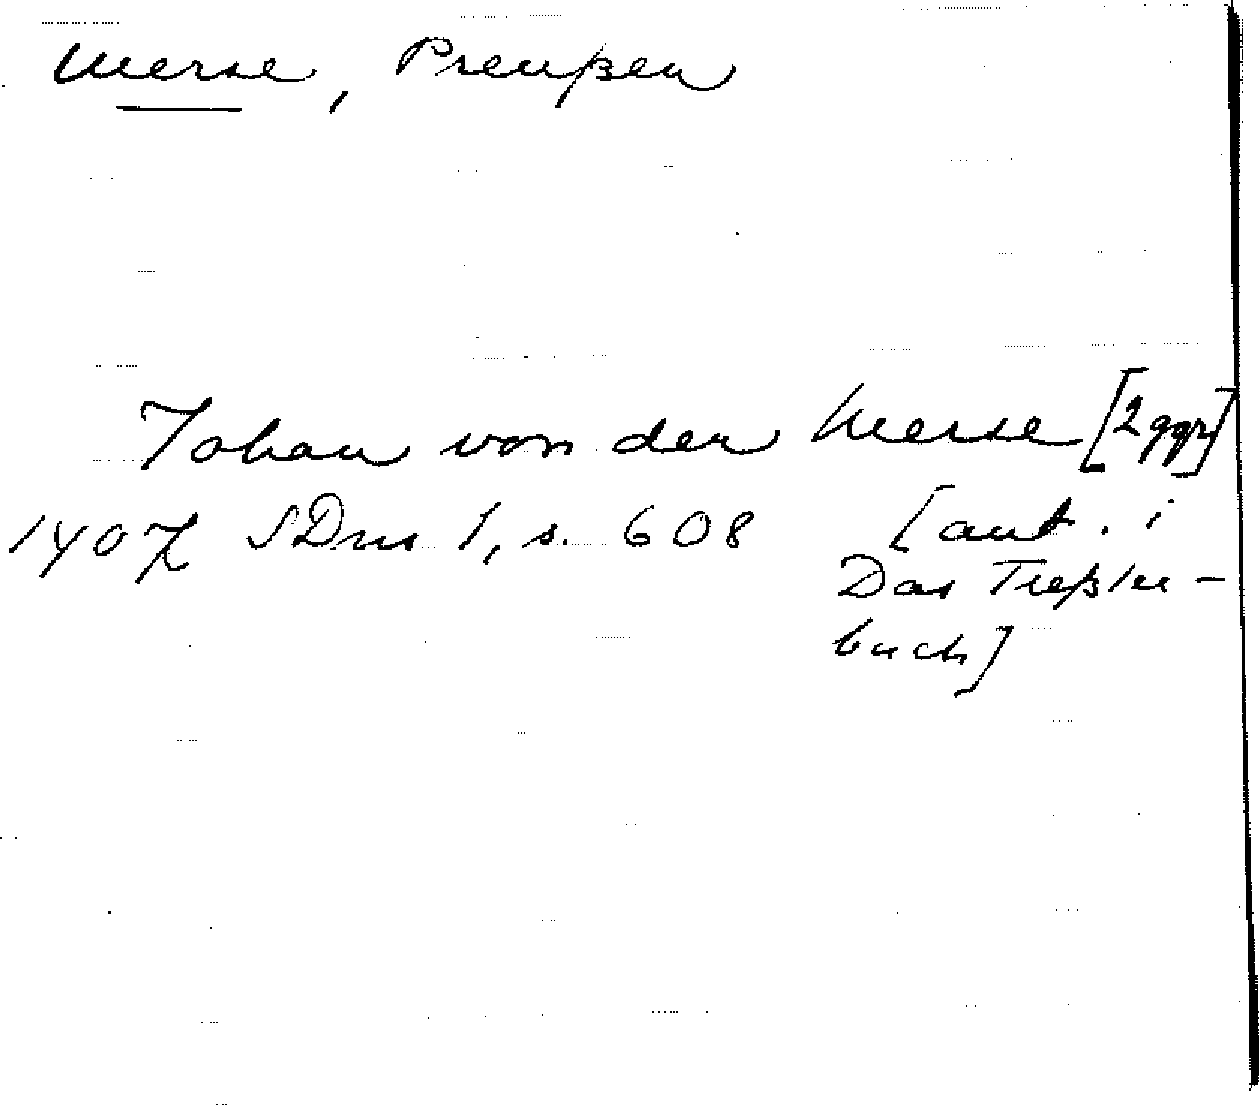 Merse, Preußen
Johan von der Merse [2 ggr]
1407 SDns 1, s. 608 [ant. i
Das Treßler-
buch]